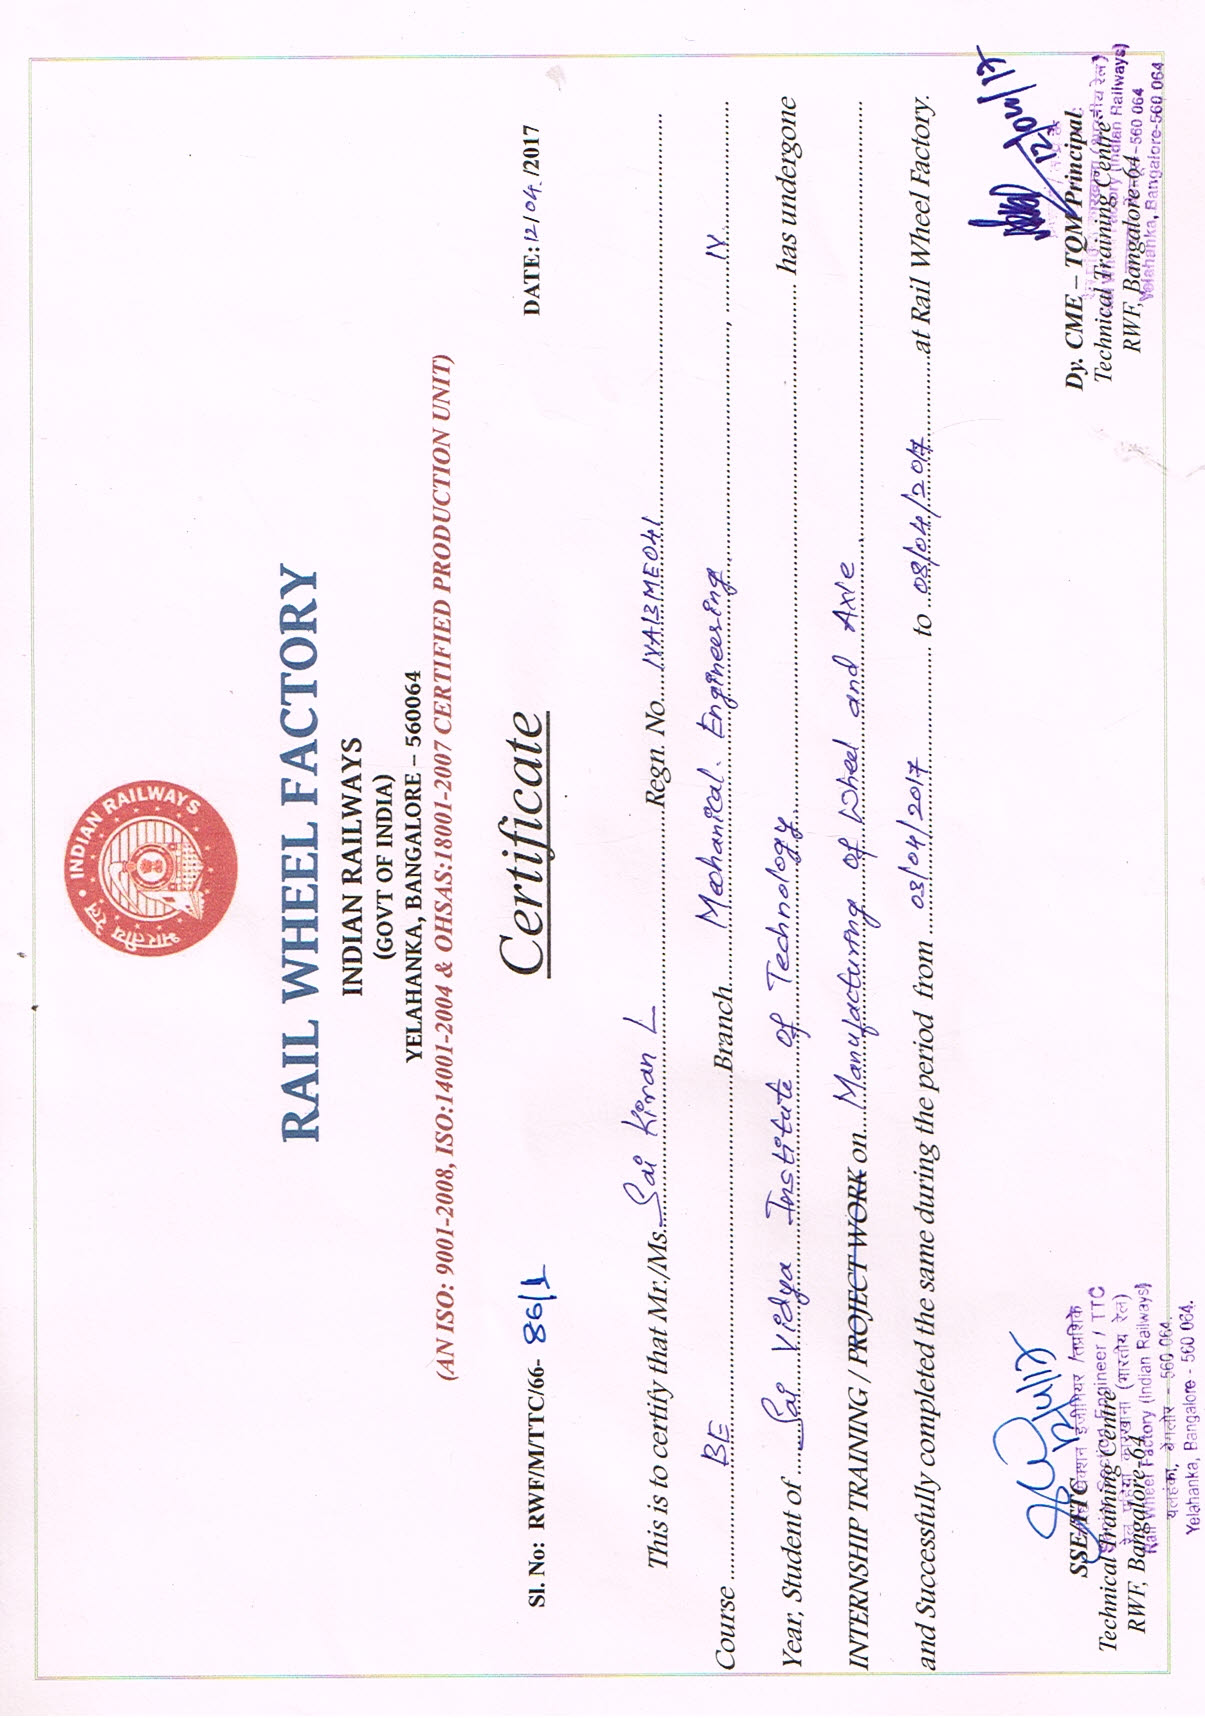 INDIAN RAILWAYS
भारतीय रेल
RAIL WHEEL FACTORY
INDIAN RAILWAYS
(GOVT OF INDIA)
YELAHANKA, BANGALORE – 560064
(AN ISO: 9001-2008, ISO:14001-2004 & OHSAS:18001-2007 CERTIFIED PRODUCTION UNIT)
Sl. No: RWF/M/TTC/66- 86/1 DATE: 12/04/2017
Certificate
This is to certify that Mr./Ms. Sai Kiran L Regn. No. 1VA13ME041
Course BE Branch Mechanical Engineering, IV
Year, Student of Sai Vidya Institute of Technology has undergone
INTERNSHIP TRAINING / PROJECT WORK on Manufacturing of Wheel and Axle
and Successfully completed the same during the period from 03/04/2017 to 08/04/2017 at Rail Wheel Factory.
SSE/TTC
Technical Training Centre
RWF, Bangalore-64
Engineer / TTC
रेल पहिया कारखाना (भारतीय रेल)
Rail Wheel Factory (Indian Railways)
यलहंका, बेंगलोर - 560 064.
Yelahanka, Bangalore - 560 064.
12/04/17
Dy. CME – TQM Principal
Technical Training Centre
RWF, Bangalore-64
(भारतीय रेल)
Factory (Indian Railways)
560 064
Yelahanka, Bangalore-560 064